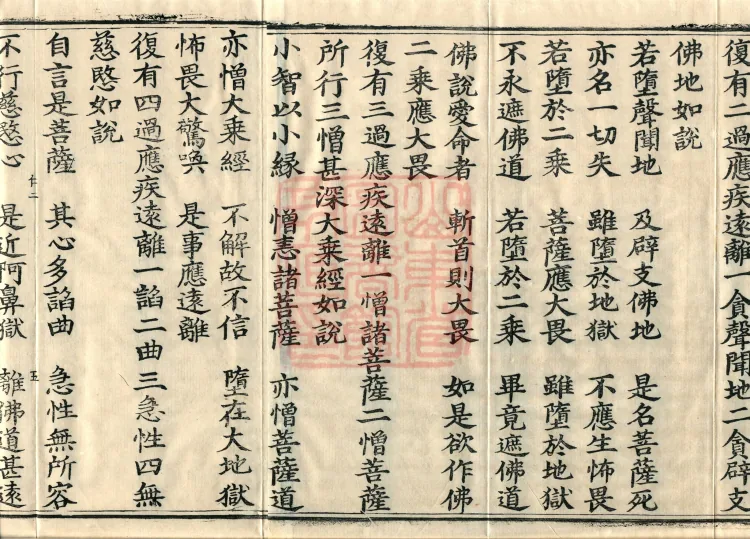 復有二過應疾遠離一貪聲聞地二貪辟支
佛地如說
若墮聲聞地　及辟支佛地　是名菩薩死
亦名一切失　雖墮於地獄　不應生怖畏
若墮於二乘　菩薩應大畏　雖墮於地獄
不永遮佛道　若墮於二乘　畢竟遮佛道
佛說愛命者　斬首則大畏　如是欲作佛
二乘應大畏
復有三過應疾遠離一憎諸菩薩二憎菩薩
所行三憎甚深大乘經如說
小智以小緣　憎恚諸菩薩　亦憎菩薩道
亦憎大乘經　不解故不信　墮在大地獄
怖畏大驚喚　是事應遠離
復有四過應疾遠離一諂二曲三急性四無
慈愍如說
自言是菩薩　其心多諂曲　急性無所容
不行慈愍心　是近阿鼻獄　離佛道甚遠
五